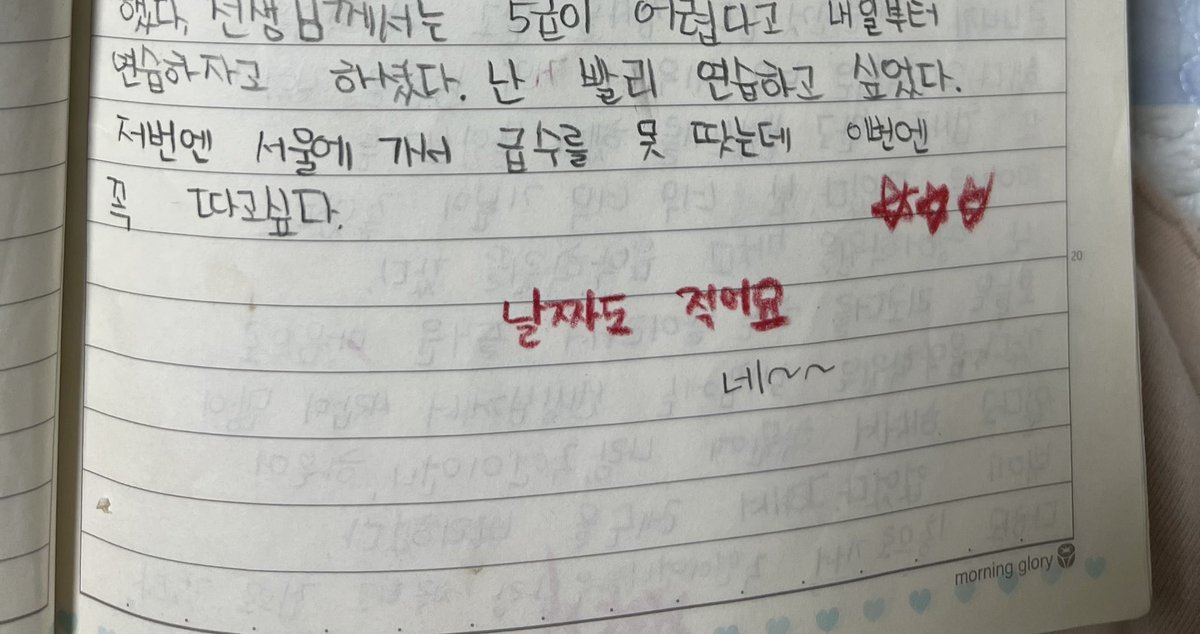 했다. 선생님께서는 5급이 어렵다고 내일부터
연습하자고 하셨다. 난 빨리 연습하고 싶었다.
저번엔 서울에 가서 급수를 못 땃는데 이번엔
꼭 따고싶다.
20
날짜도 적어요
네~~
morning glory